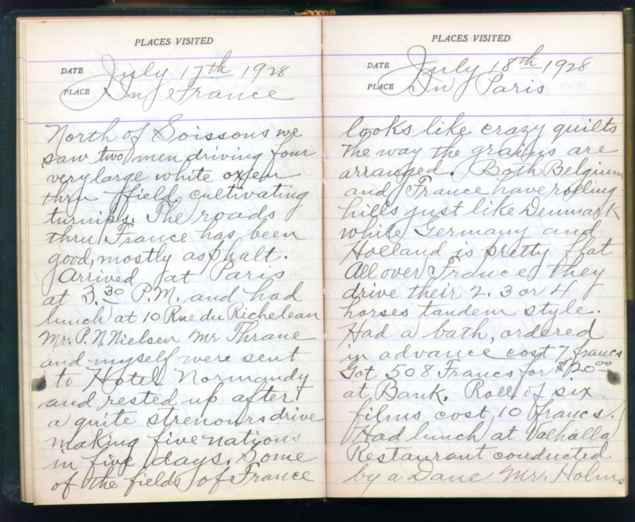 PLACES VISITED
DATE July 17th 1928
PLACE In France
North of Soissons we
saw two men driving four
very large white oxen
thru field cultivating
turnips. The roads
thru France has been
good, mostly asphalt.
Arrived at Paris
at 3.30 P.M. and had
lunch at 10 Rue du Richeleau
Mr. P. N. Nielsen Mr Thrane
and myself were sent
to Hotel Normandy
and rested up after
a quite strenours drive
making five nations
in five days. Some
of the fields of France
PLACES VISITED
DATE July 18th 1928
PLACE In Paris
looks like crazy quilts
the way the grains are
arranged. Both Belgium
and France have rolling
hills just like Denmark
while Germany and
Holland is pretty flat
All over France they
drive their 2. 3 or 4
horses tandem style.
Had a bath, ordered
in advance cost 7 francs
Got 508 Francs for $20.00
at Bank. Roll of six
films cost 10 francs.
Had lunch at Valhalla
Restaurant conducted
by a Dane Mr. Holm